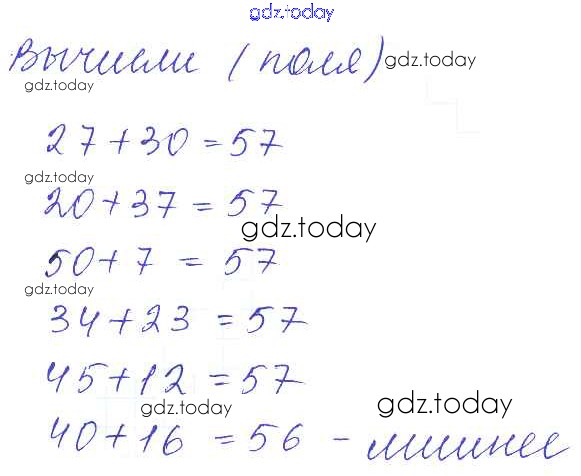 gdz.today
Вычисли (поля) gdz.today
gdz.today
27+30=57
gdz.today
20+37=57
gdz.today
50+7=57
gdz.today
34+23=57
45+12=57
gdz.today gdz.today
40+16=56 - лишнее